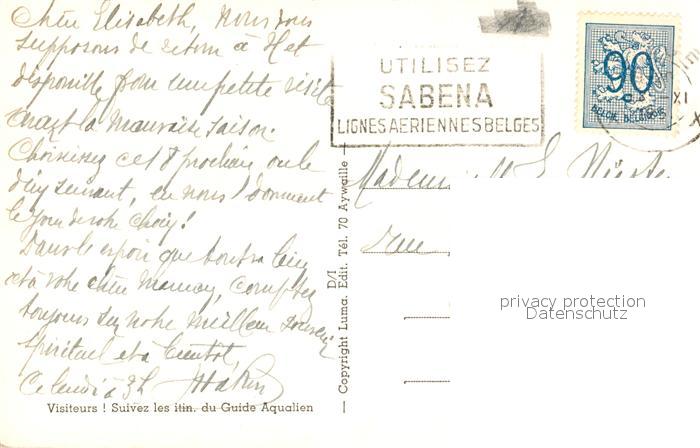 Chère Elisabeth, Nous vous
supposons de retour à Het
disponible pour une petite visite
avant la Mauvaise saison.
Choisissez cet 8 prochain ou le
suivant, en nous donnant
le jour de votre choix!
Dans l'espoir que tout va bien
et à votre chère Maman, comptez
toujours sur notre meilleur souvenir
spirituel et à bientôt,
Ce lundi à 3h
Visiteurs ! Suivez les itin. du Guide Aqualien
D/I
— Copyright Luma. Edit. Tél. 70 Aywaille —
UTILISEZ
SABENA
LIGNES AERIENNES BELGES
90
BELGIE BELGIQUE
XI
Mademoiselle
rue
privacy protection
Datenschutz